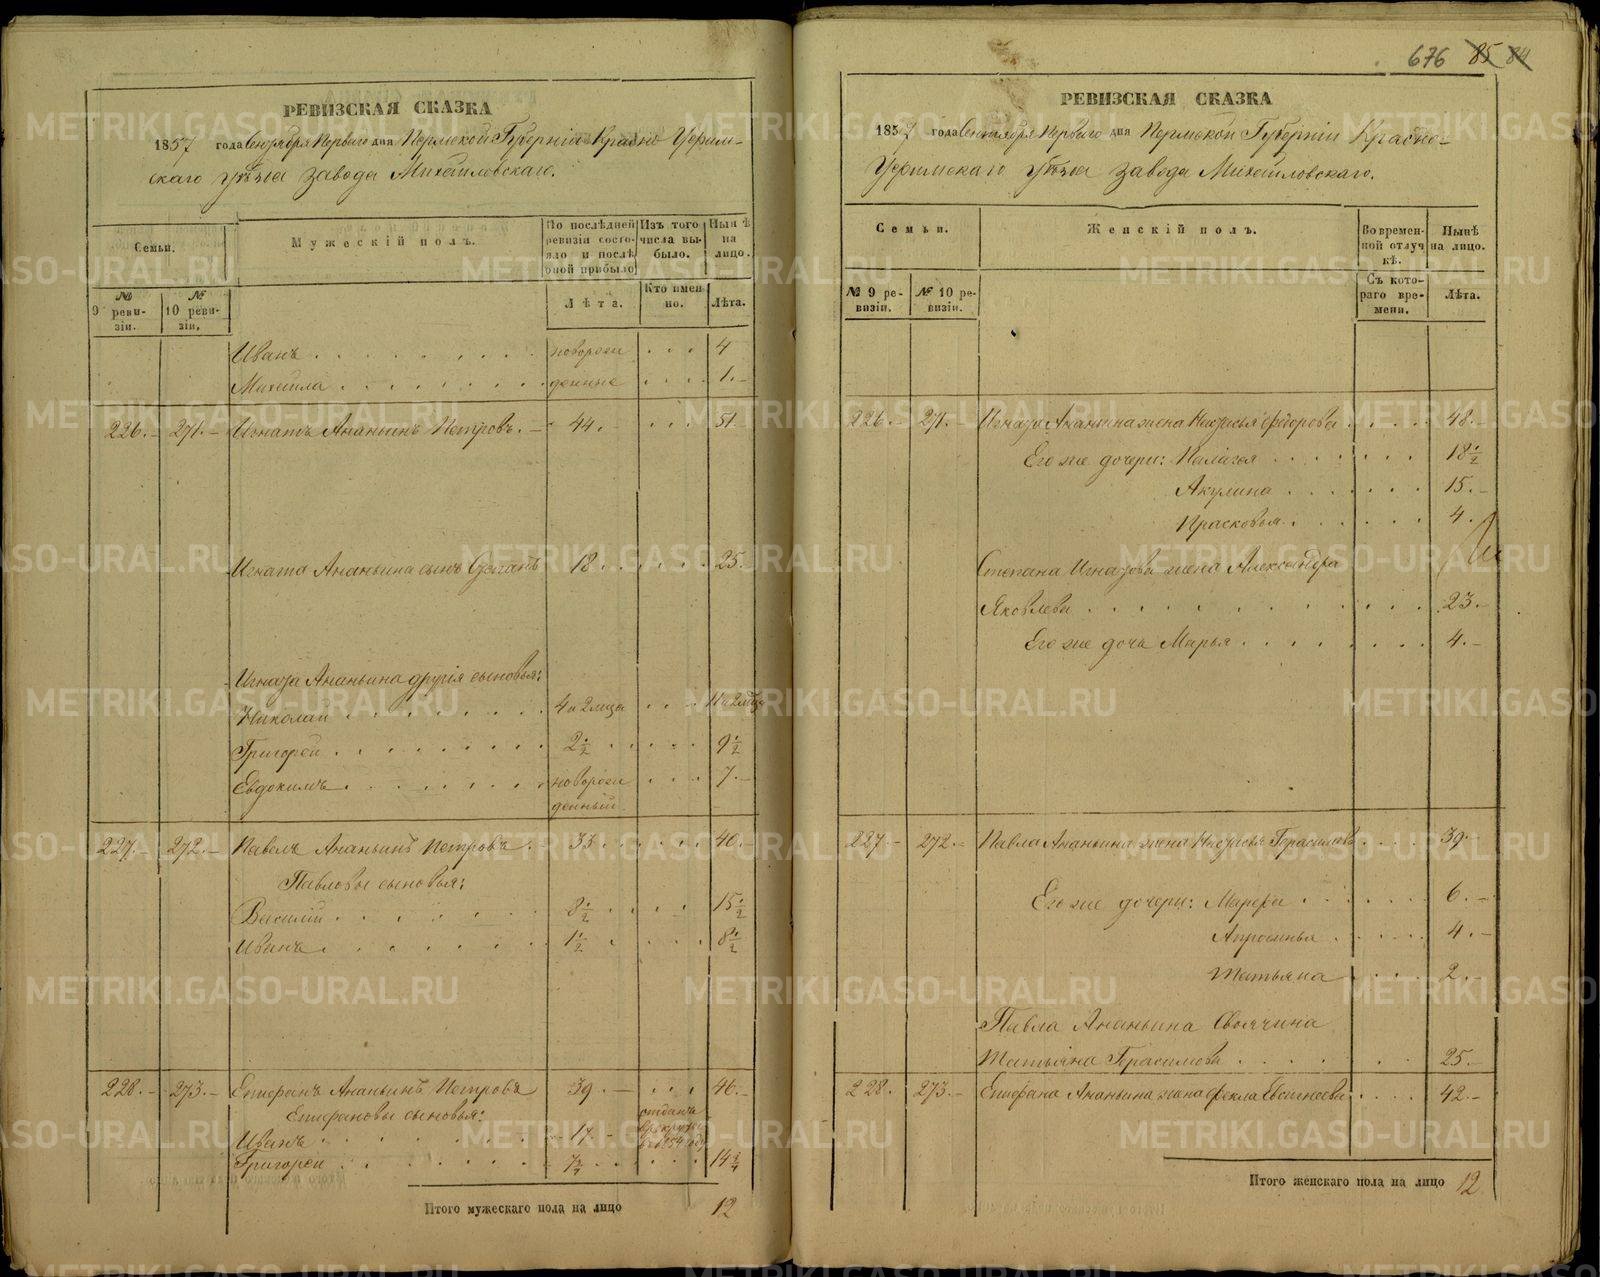 РЕВИЗСКАЯ СКАЗКА
1857 года Сентября Перваго дня Пермской Губерніи Красно Уфим-
скаго уѣзда завода Михайловскаго.
Семьи.
Мужескій полъ.
По послѣдней ревизіи состояло и послѣ оной прибыло
Изъ того числа выбыло.
Нынѣ на лицо.
№ 9 ревизіи.
№ 10 ревизіи.
Лѣта.
Кто именно.
Лѣта.
Иванъ новорож 4
Михайла денные 1.-
226.- 271.- Игнатъ Ананьинъ Петровъ.- 44.- 51
Игната Ананьина сынъ Степанъ 18 25.
Игната Ананьина другія сыновья:
Николай 4 и 2 мцы 11 и 2 мцы
Григорей 2 1/2 9 1/2
Евдокимъ новорож 7.-
денный
227.- 272.- Павелъ Ананьинъ Петровъ 33 40.-
Павловы сыновья:
Василій 8 1/2 15 1/2
Иванъ 1 1/2 8 1/2
228.- 273.- Епифанъ Ананьинъ Петровъ 39.- 46.-
Епифановы сыновья: отданъ
Иванъ 17 в рекруты въ 1854 году
Григорей 7 3/4 14 3/4
Итого мужескаго пола на лицо 12
676 85 84
РЕВИЗСКАЯ СКАЗКА
1857 года Сентября Перваго дня Пермской Губерніи Красно-
Уфимскаго уѣзда завода Михайловскаго.
Семьи.
Женскій полъ.
Во временной отлучкѣ.
Нынѣ на лицо.
№ 9 ревизіи.
№ 10 ревизіи.
Съ котораго времени.
Лѣта.
226.- 271.- Игната Ананьина жена Настасья Федорова 48.-
Его же дочери: Палагея 18 1/2
Акулина 15.-
Прасковья 4.
Степана Игнатова жена Александра
Яковлева 23.-
Его же дочь Марья 4.-
227.- 272.- Павла Ананьина жена Настасья Герасимова 39.-
Его же дочери: Марфа 6.-
Апросинья 4.-
Татьяна 2.-
Павла Ананьина Своячина
Татьяна Герасимова 25.-
228. 273.- Епифана Ананьина жена Фекла Евстигнеева 42.-
Итого женскаго пола на лицо 12
METRIKI.GASO-URAL.RU